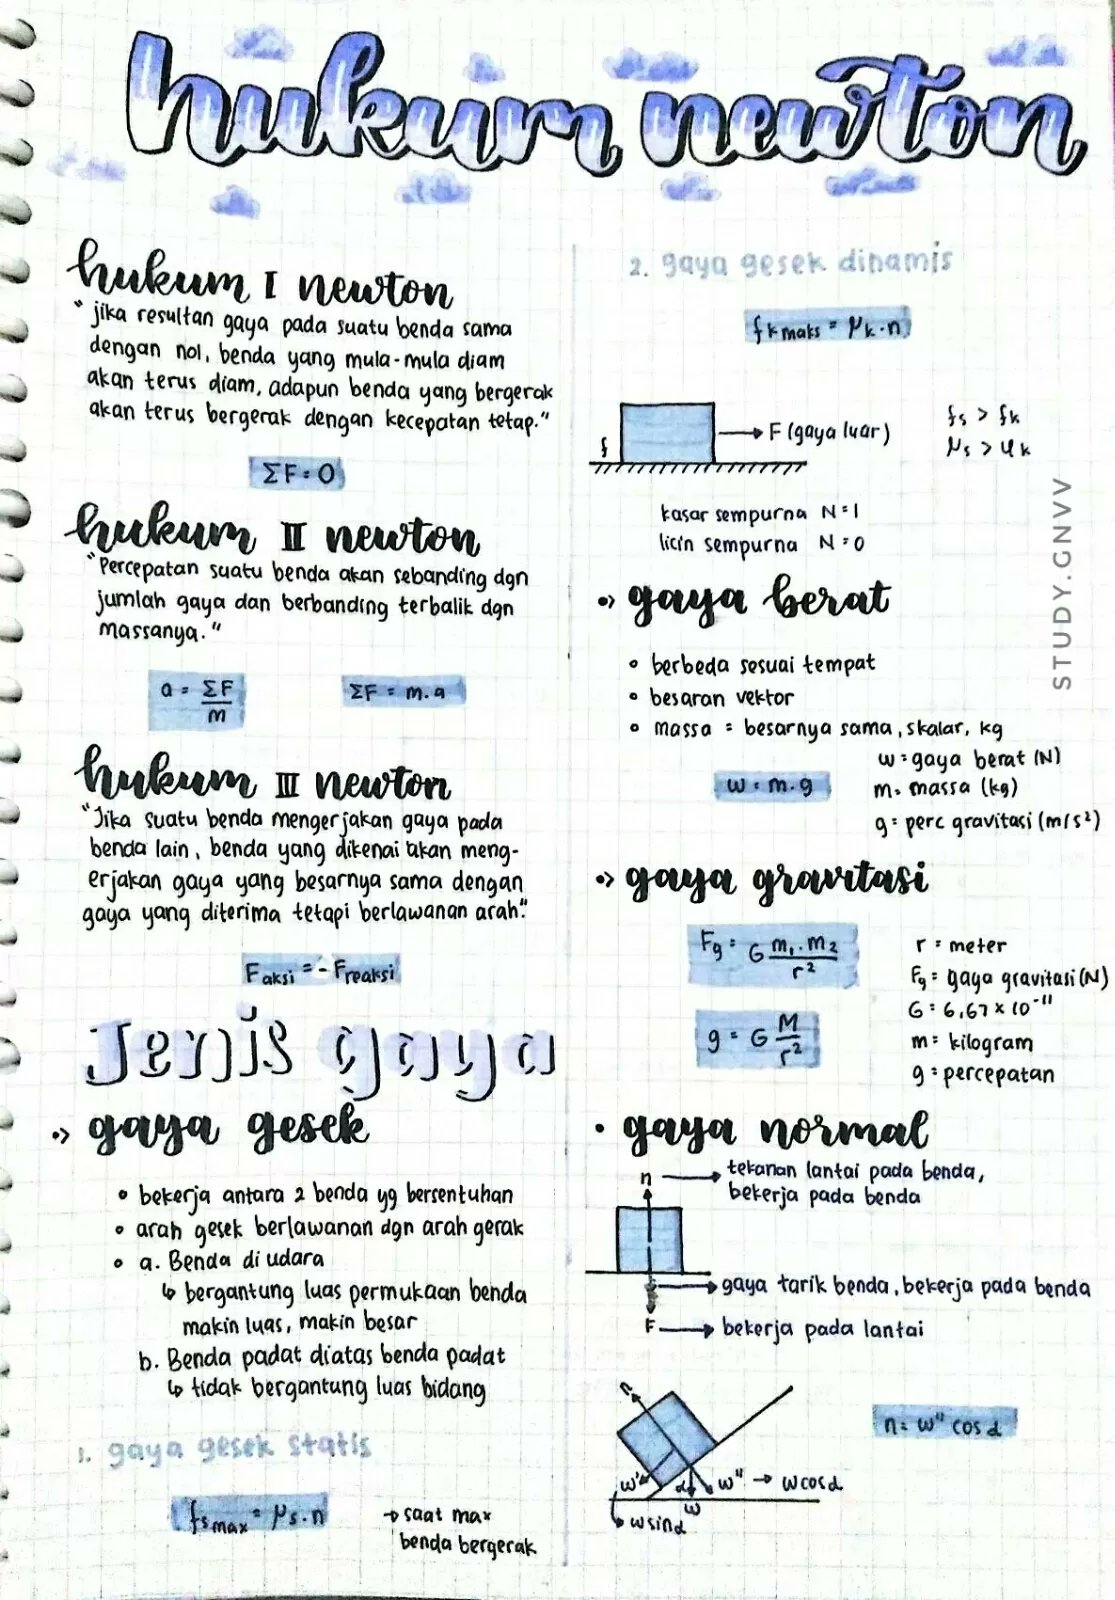 hukum newton
hukum I newton
"jika resultan gaya pada suatu benda sama
dengan nol, benda yang mula-mula diam
akan terus diam, adapun benda yang bergerak
akan terus bergerak dengan kecepatan tetap."
ΣF = 0
hukum II newton
"Percepatan suatu benda akan sebanding dgn
jumlah gaya dan berbanding terbalik dgn
massanya."
a = ΣF/m
ΣF = m.a
hukum III newton
"Jika suatu benda mengerjakan gaya pada
benda lain, benda yang dikenai akan meng-
erjakan gaya yang besarnya sama dengan
gaya yang diterima tetapi berlawanan arah."
Faksi = - Freaksi
Jenis gaya
gaya gesek
bekerja antara 2 benda yg bersentuhan
arah gesek berlawanan dgn arah gerak
a. Benda di udara
↳ bergantung luas permukaan benda
makin luas, makin besar
b. Benda padat diatas benda padat
↳ tidak bergantung luas bidang
1. gaya gesek statis
fs max = μs . n
→ saat max
benda bergerak
2. gaya gesek dinamis
fk maks = μk . n
f
F (gaya luar)
fs > fk
μs > μk
kasar sempurna N = 1
licin sempurna N = 0
gaya berat
berbeda sesuai tempat
besaran vektor
massa = besarnya sama, skalar, kg
w = m.g
w = gaya berat (N)
m = massa (kg)
g = perc gravitasi (m/s²)
gaya gravitasi
Fg = G m₁.m₂/r²
g = G M/r²
r = meter
Fg = gaya gravitasi (N)
G = 6,67 × 10⁻¹¹
m = kilogram
g = percepatan
gaya normal
n → tekanan lantai pada benda,
bekerja pada benda
→ gaya tarik benda, bekerja pada benda
F → bekerja pada lantai
n
w'
α
w
w" → w cos α
w sin α
n = w" cos α
STUDY.GNVV